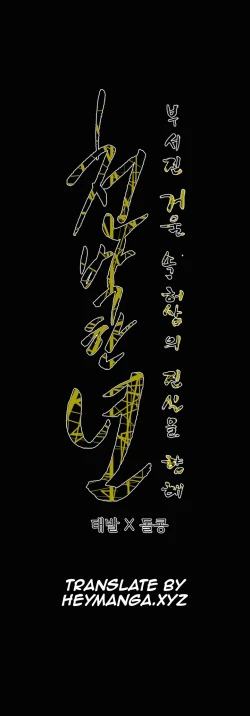 천박한 년
부서진 거울 속 허상의 진실을 향해
태발 X 돌콩
TRANSLATE BY
HEYMANGA.XYZ